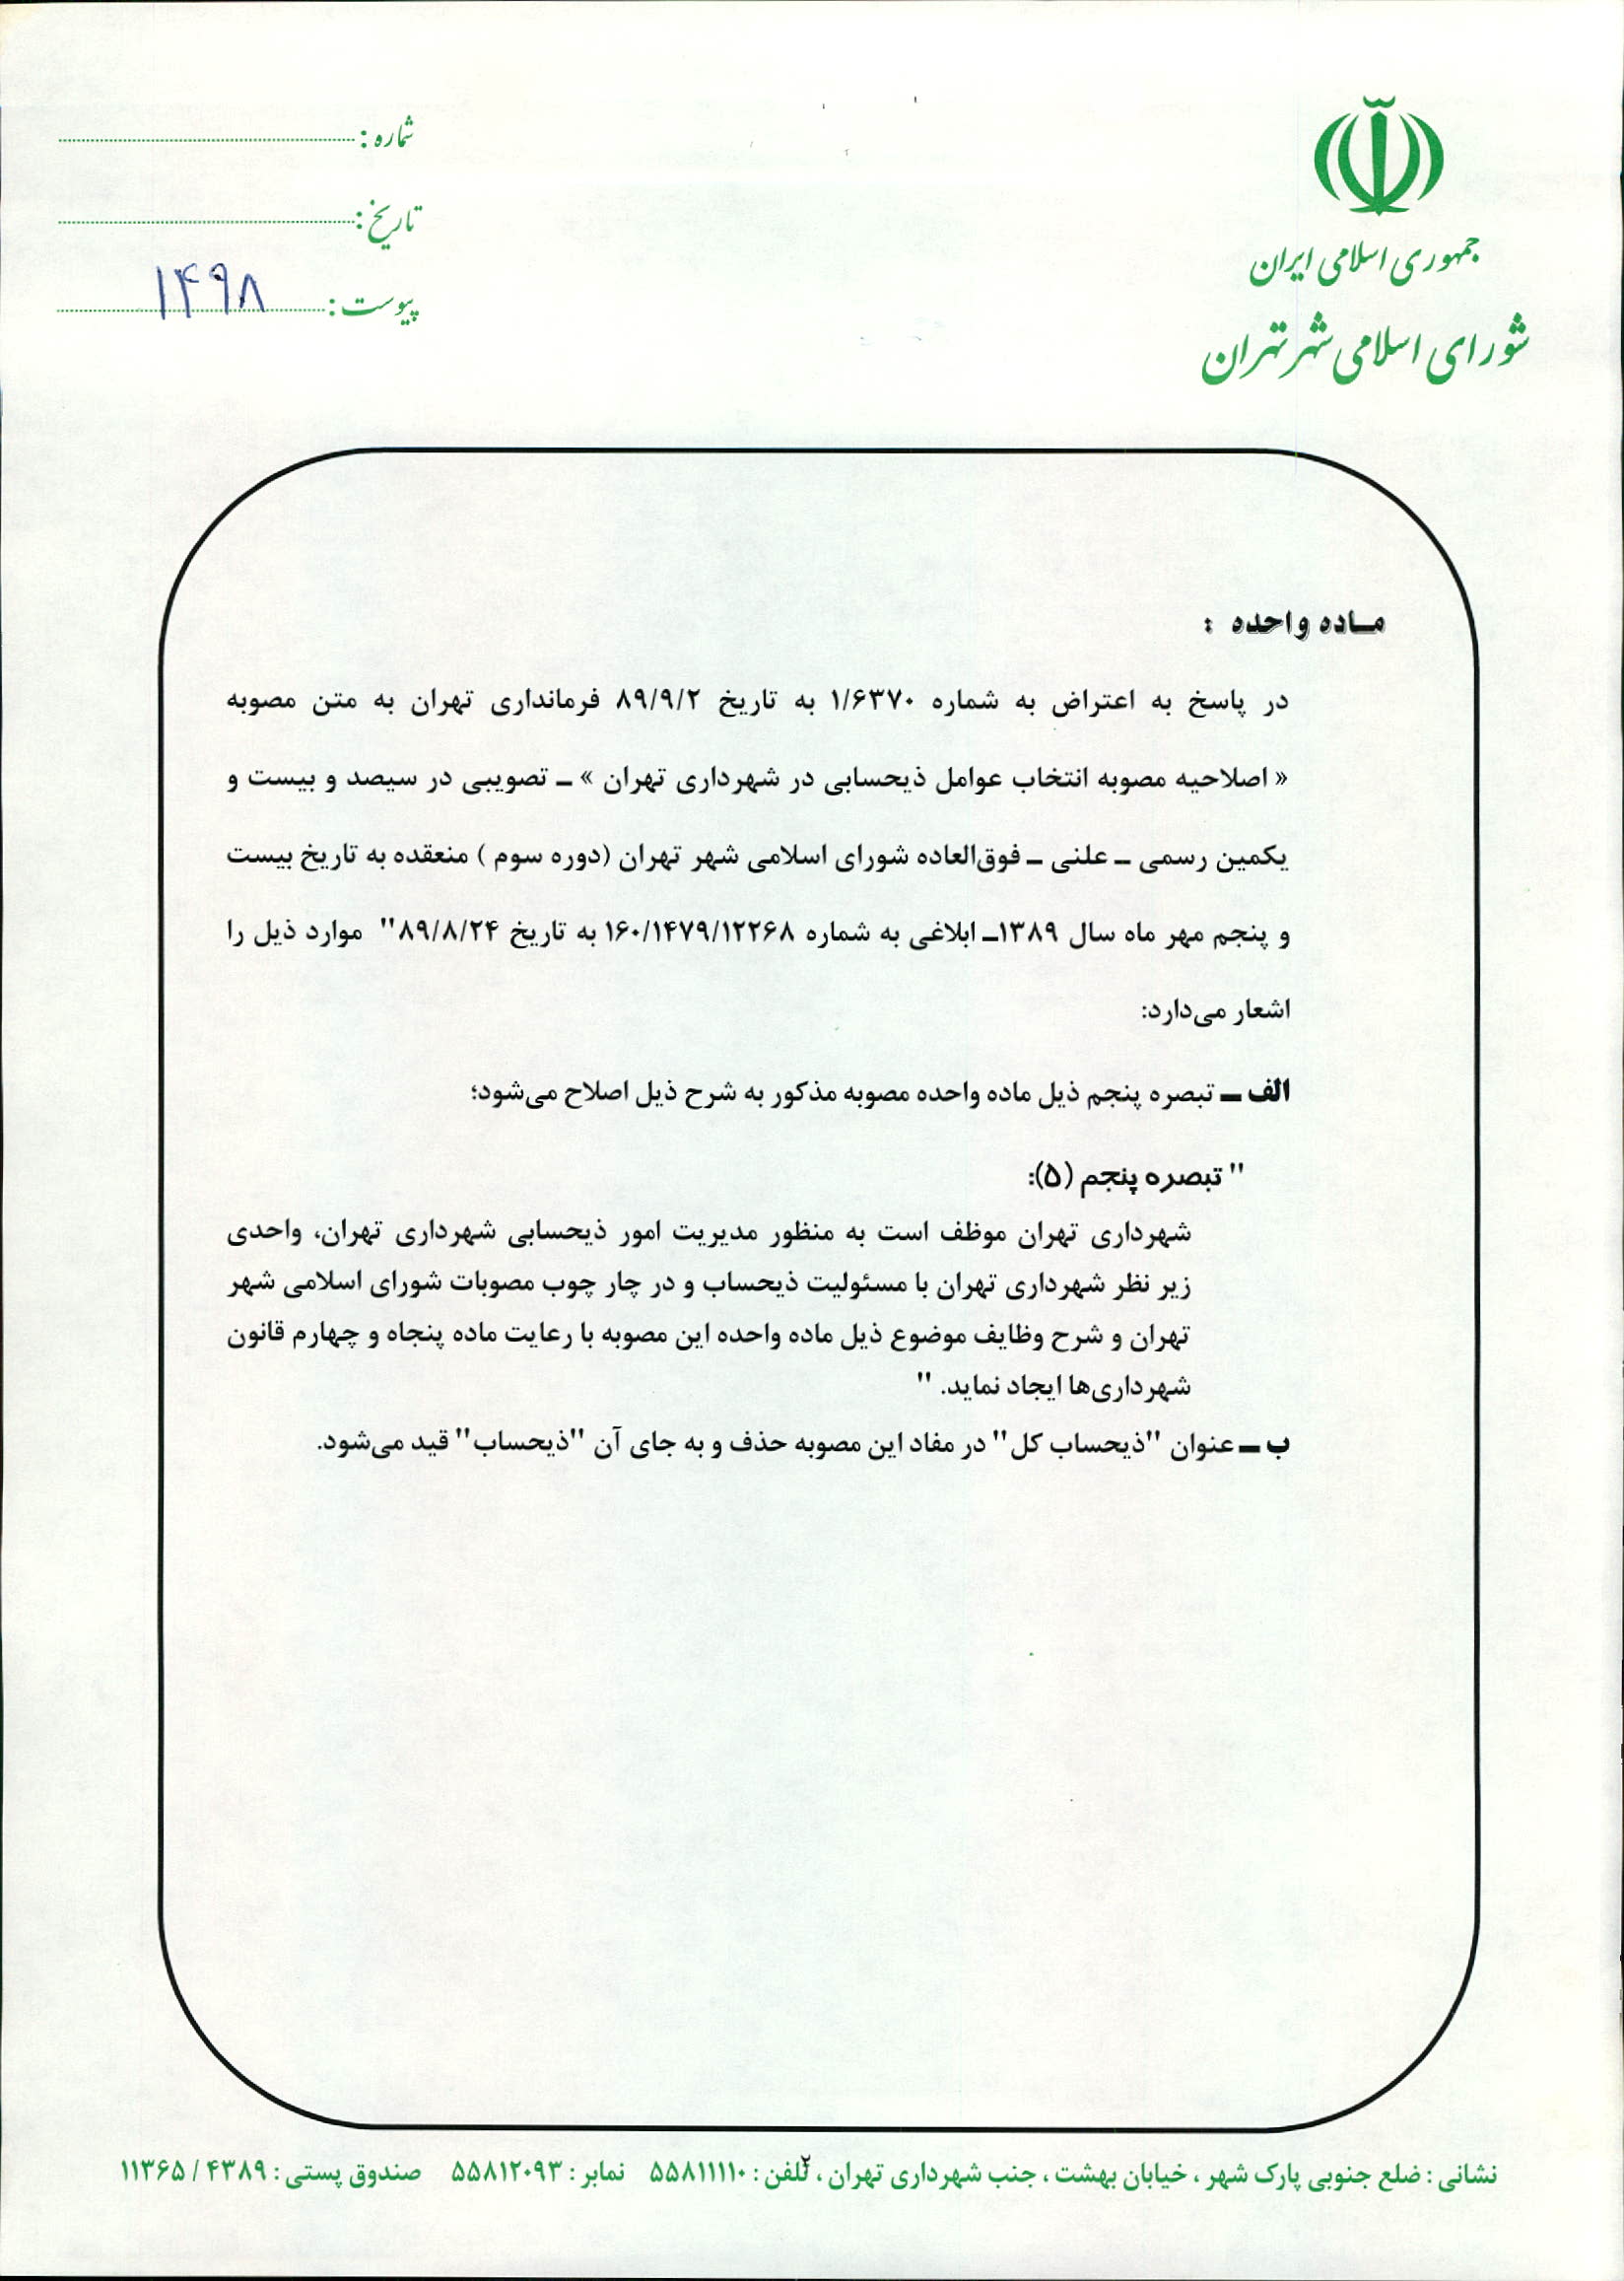 جمهوری اسلامی ایران
شورای اسلامی شهر تهران
شماره :
تاریخ :
پیوست : ۱۴۹۸
ماده واحده :
در پاسخ به اعتراض به شماره ۱/۶۳۷۰ به تاریخ ۸۹/۹/۲ فرمانداری تهران به متن مصوبه
« اصلاحیه مصوبه انتخاب عوامل ذیحسابی در شهرداری تهران » ـ تصویبی در سیصد و بیست و
یکمین رسمی ـ علنی ـ فوق‌العاده شورای اسلامی شهر تهران (دوره سوم ) منعقده به تاریخ بیست
و پنجم مهر ماه سال ۱۳۸۹ـ ابلاغی به شماره ۱۶۰/۱۴۷۹/۱۲۲۶۸ به تاریخ ۸۹/۸/۲۴" موارد ذیل را
اشعار می‌دارد:
الف ـ تبصره پنجم ذیل ماده واحده مصوبه مذکور به شرح ذیل اصلاح می‌شود؛
" تبصره پنجم (۵):
شهرداری تهران موظف است به منظور مدیریت امور ذیحسابی شهرداری تهران، واحدی
زیر نظر شهرداری تهران با مسئولیت ذیحساب و در چار چوب مصوبات شورای اسلامی شهر
تهران و شرح وظایف موضوع ذیل ماده واحده این مصوبه با رعایت ماده پنجاه و چهارم قانون
شهرداری‌ها ایجاد نماید. "
ب ـ عنوان "ذیحساب کل" در مفاد این مصوبه حذف و به جای آن "ذیحساب" قید می‌شود.
۲
نشانی : ضلع جنوبی پارک شهر ، خیابان بهشت ، جنب شهرداری تهران ، تلفن : ۵۵۸۱۱۱۱۰ نمابر : ۵۵۸۱۲۰۹۳ صندوق پستی : ۴۳۸۹ / ۱۱۳۶۵